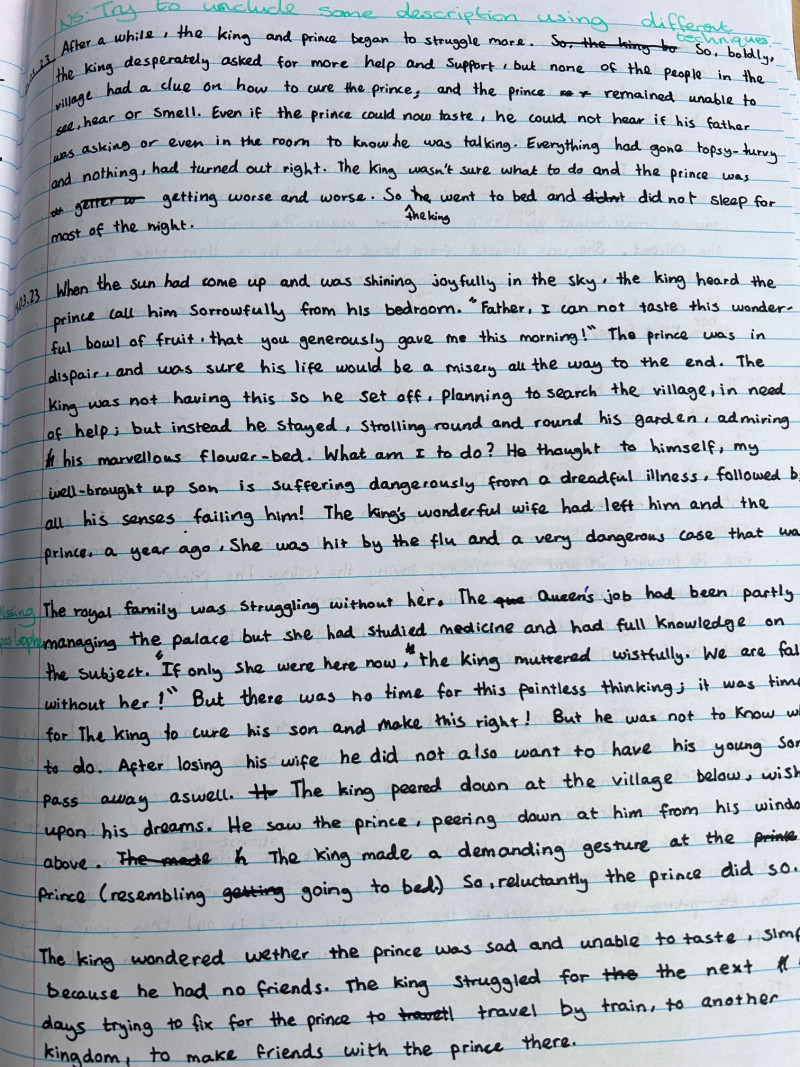 NS: Try to include some description using different techniques.
.03.23 After a while, the king and prince began to struggle more. So, the king to So, boldly,
the king desperately asked for more help and support, but none of the people in the
village had a clue on how to cure the prince, and the prince remained unable to
see, hear or smell. Even if the prince could now taste, he could not hear if his father
was asking or even in the room to know he was talking. Everything had gone topsy-turvy
and nothing, had turned out right. The king wasn't sure what to do and the prince was
getting worse and worse. So he went to bed and didnt did not sleep for
the king
most of the night.
.03.23 When the sun had come up and was shining joyfully in the sky, the king heard the
prince call him sorrowfully from his bedroom. "Father, I can not taste this wonder-
ful bowl of fruit, that you generously gave me this morning!" The prince was in
dispair, and was sure his life would be a misery all the way to the end. The
king was not having this so he set off, planning to search the village, in need
of help; but instead he stayed, strolling round and round his garden, admiring
his marvellous flower-bed. What am I to do? He thought to himself, my
well-brought up son is suffering dangerously from a dreadful illness, followed b
all his senses failing him! The king's wonderful wife had left him and the
prince, a year ago, She was hit by the flu and a very dangerous case that wa
The royal family was struggling without her. The que Queen's job had been partly
managing the palace but she had studied medicine and had full knowledge on
the subject. "If only she were here now," the king muttered wistfully. We are fal
without her!" But there was no time for this pointless thinking; it was time
for The king to cure his son and make this right! But he was not to know w
to do. After losing his wife he did not also want to have his young son
pass away aswell. The king peered down at the village below, wish
upon his dreams. He saw the prince, peering down at him from his windo
above. The made The king made a demanding gesture at the prince
Prince (resembling getting going to bed.) So, reluctantly the prince did so.
The king wondered wether the prince was sad and unable to taste, simp
because he had no friends. The king struggled for the the next
days trying to fix for the prince to travel travel by train, to another
kingdom, to make friends with the prince there.